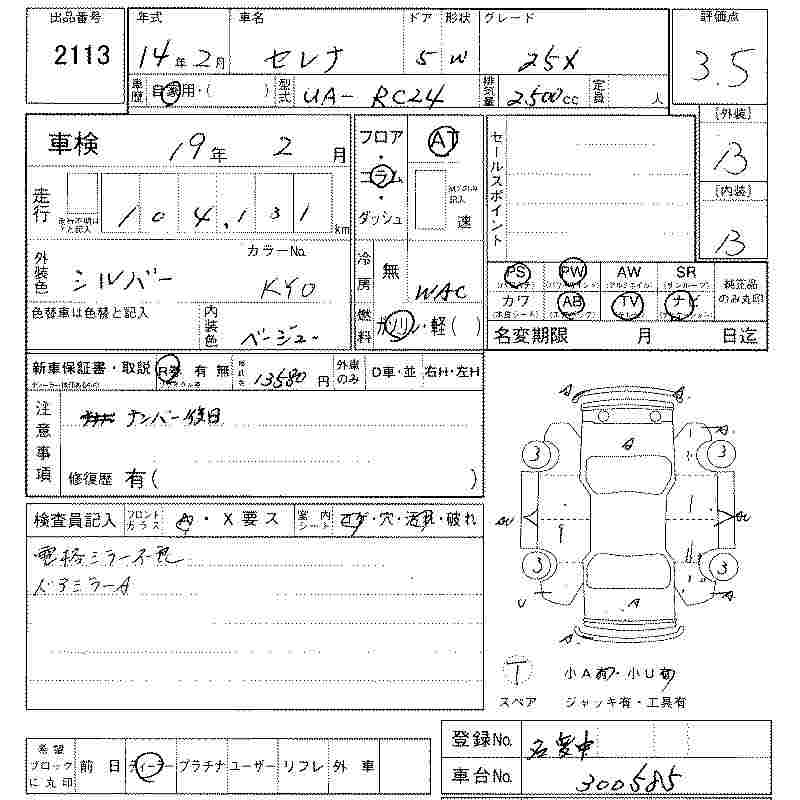 出品番号 2113
年式 14年2月
車名 セレナ
ドア 5 形状 W
グレード 25X
評価点 3.5
車歴 自家用・( )
型式 UA- RC24
排気量 2500cc
定員 人
[外装] B
[内装] B
車検 19年 2月
走行 104,131 km
外装色 シルバー
カラーNo. KY0
色替車は色替と記入
内装色 ベージュ
フロア・コラム・ダッシュ
AT
速
冷房 無 WAC
燃料 ガソリン・軽( )
セールスポイント
PS PW AW SR
カワ AB TV ナビ
純正品のみ丸印
名変期限 月 日迄
新車保証書・取説
R券 有 無
13580円
外車のみ D車・並 右H・左H
注意事項 ナンバー後日
修復歴 有( )
検査員記入 フロントガラス A・X要ス
室内シート コゲ・穴・汚れ・破れ
電格ミラー不良
ドアミラーA
A A
A A
3 3
SU SU
3 3
U A
A A
T
スペア
小A有・小U有
ジャッキ有・工具有
希望ブロックに丸印 前日 ディーラー プラチナ ユーザー リフレ 外車
登録No. 名変中
車台No. 300585